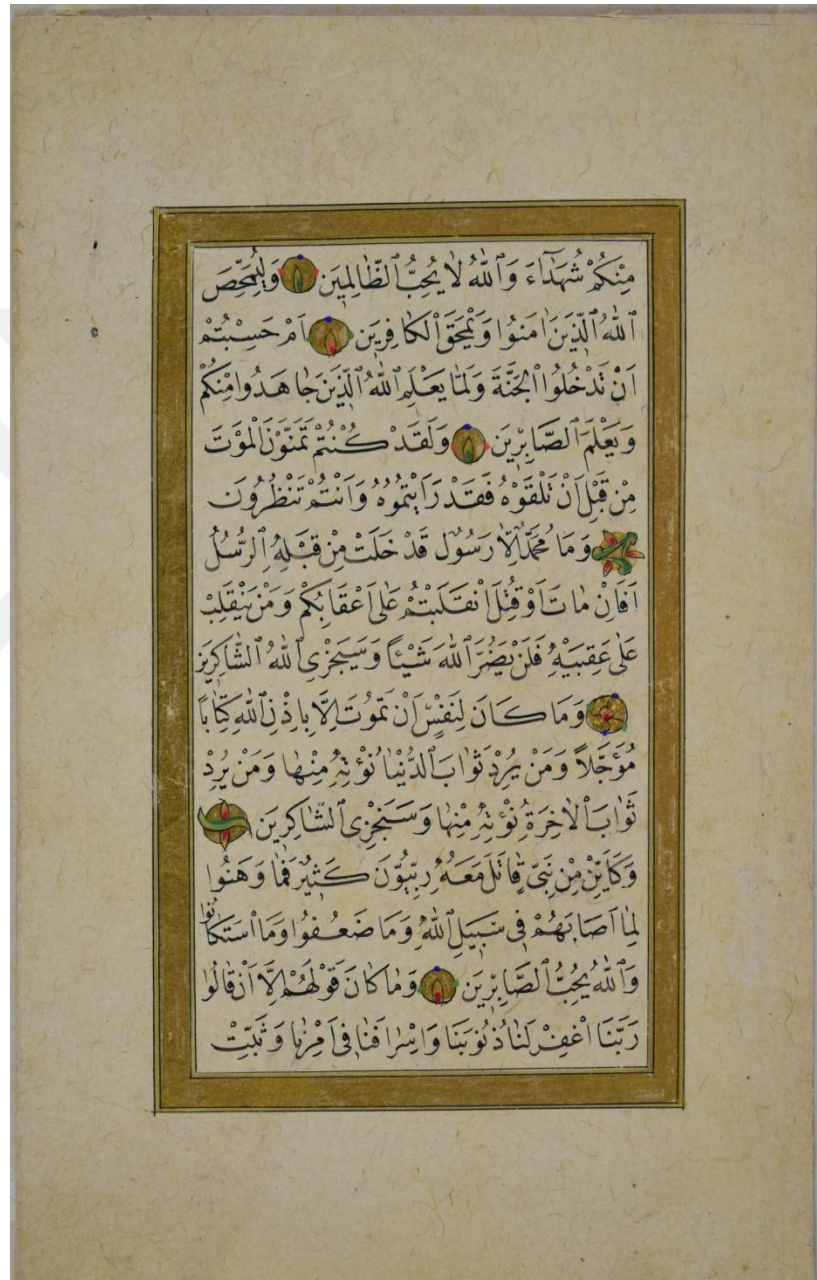 مِنْكُمْ شُهَدَٓاءَ وَٱللّٰهُ لَا يُحِبُّ ٱلظَّالِمٖينَ وَلِيُمَحِّصَ
ٱللّٰهُ ٱلَّذٖينَ اٰمَنُوا وَيَمْحَقَ ٱلْكَافِرٖينَ اَمْ حَسِبْتُمْ
اَنْ تَدْخُلُوا الْجَنَّةَ وَلَمَّا يَعْلَمِ ٱللّٰهُ ٱلَّذٖينَ جَاهَدُوا مِنْكُمْ
وَيَعْلَمَ ٱلصَّابِرٖينَ وَلَقَدْ كُنْتُمْ تَمَنَّوْنَ الْمَوْتَ
مِنْ قَبْلِ اَنْ تَلْقَوْهُ فَقَدْ رَاَيْتُمُوهُ وَاَنْتُمْ تَنْظُرُونَ
وَمَا مُحَمَّدٌ اِلَّا رَسُولٌ قَدْ خَلَتْ مِنْ قَبْلِهِ ٱلرُّسُلُ
اَفَاِنْ مَاتَ اَوْ قُتِلَ انْقَلَبْتُمْ عَلٰى اَعْقَابِكُمْ وَمَنْ يَنْقَلِبْ
عَلٰى عَقِبَيْهِ فَلَنْ يَضُرَّ ٱللّٰهَ شَيْـًٔا وَسَيَجْزِى ٱللّٰهُ ٱلشَّاكِرٖينَ
وَمَا كَانَ لِنَفْسٍ اَنْ تَمُوتَ اِلَّا بِاِذْنِ ٱللّٰهِ كِتَابًا
مُؤَجَّلًا وَمَنْ يُرِدْ ثَوَابَ ٱلدُّنْيَا نُؤْتِهٖ مِنْهَا وَمَنْ يُرِدْ
ثَوَابَ ٱلْاٰخِرَةِ نُؤْتِهٖ مِنْهَا وَسَنَجْزِى ٱلشَّاكِرٖينَ
وَكَاَيِّنْ مِنْ نَبِىٍّ قَاتَلَ مَعَهُ رِبِّيُّونَ كَثٖيرٌ فَمَا وَهَنُوا
لِمَا اَصَابَهُمْ فٖى سَبٖيلِ ٱللّٰهِ وَمَا ضَعُفُوا وَمَا اسْتَكَانُوا
وَٱللّٰهُ يُحِبُّ ٱلصَّابِرٖينَ وَمَا كَانَ قَوْلَهُمْ اِلَّا اَنْ قَالُوا
رَبَّنَا اغْفِرْ لَنَا ذُنُوبَنَا وَاِسْرَافَنَا فٖى اَمْرِنَا وَثَبِّتْ